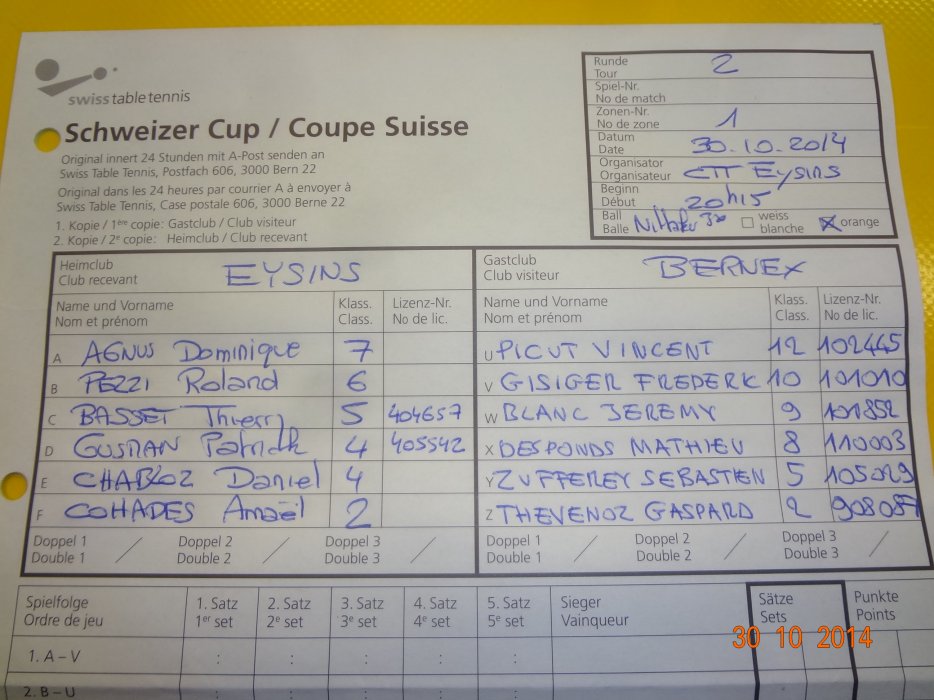 swiss table tennis
Schweizer Cup / Coupe Suisse
Original innert 24 Stunden mit A-Post senden an
Swiss Table Tennis, Postfach 606, 3000 Bern 22
Original dans les 24 heures par courrier A à envoyer à
Swiss Table Tennis, Case postale 606, 3000 Berne 22
1. Kopie / 1ère copie: Gastclub / Club visiteur
2. Kopie / 2e copie: Heimclub / Club recevant
Runde
Tour 2
Spiel-Nr.
No de match
Zonen-Nr.
No de zone 1
Datum
Date 30.10.2014
Organisator
Organisateur CTT Eysins
Beginn
Début 20h15
Ball
Balle Nittaku weiss
blanche orange
Heimclub
Club recevant EYSINS
Gastclub
Club visiteur BERNEX
Name und Vorname
Nom et prénom
Klass.
Class.
Lizenz-Nr.
No de lic.
Name und Vorname
Nom et prénom
Klass.
Class.
Lizenz-Nr.
No de lic.
A AGNUS Dominique 7
U PICUT VINCENT 12 102445
B PEZZI Roland 6
V GISIGER FREDERK 10 101010
C BASSET Thierry 5 404657
W BLANC JEREMY 9 101852
D Patrick 4 405542
X DESPONDS MATHIEU 8 110003
E CHABLOZ Daniel 4
Y ZUFFEREY SEBASTIEN 5 105029
F COHADES Amaël 2
Z THEVENOZ GASPARD 2 908087
Doppel 1
Double 1 /
Doppel 2
Double 2 /
Doppel 3
Double 3 /
Doppel 1
Double 1 /
Doppel 2
Double 2 /
Doppel 3
Double 3 /
Spielfolge
Ordre de jeu
1. Satz
1er set
2. Satz
2e set
3. Satz
3e set
4. Satz
4e set
5. Satz
5e set
Sieger
Vainqueur
Sätze
Sets
Punkte
Points
1. A – V : : : : :
2. B – U
30 10 2014